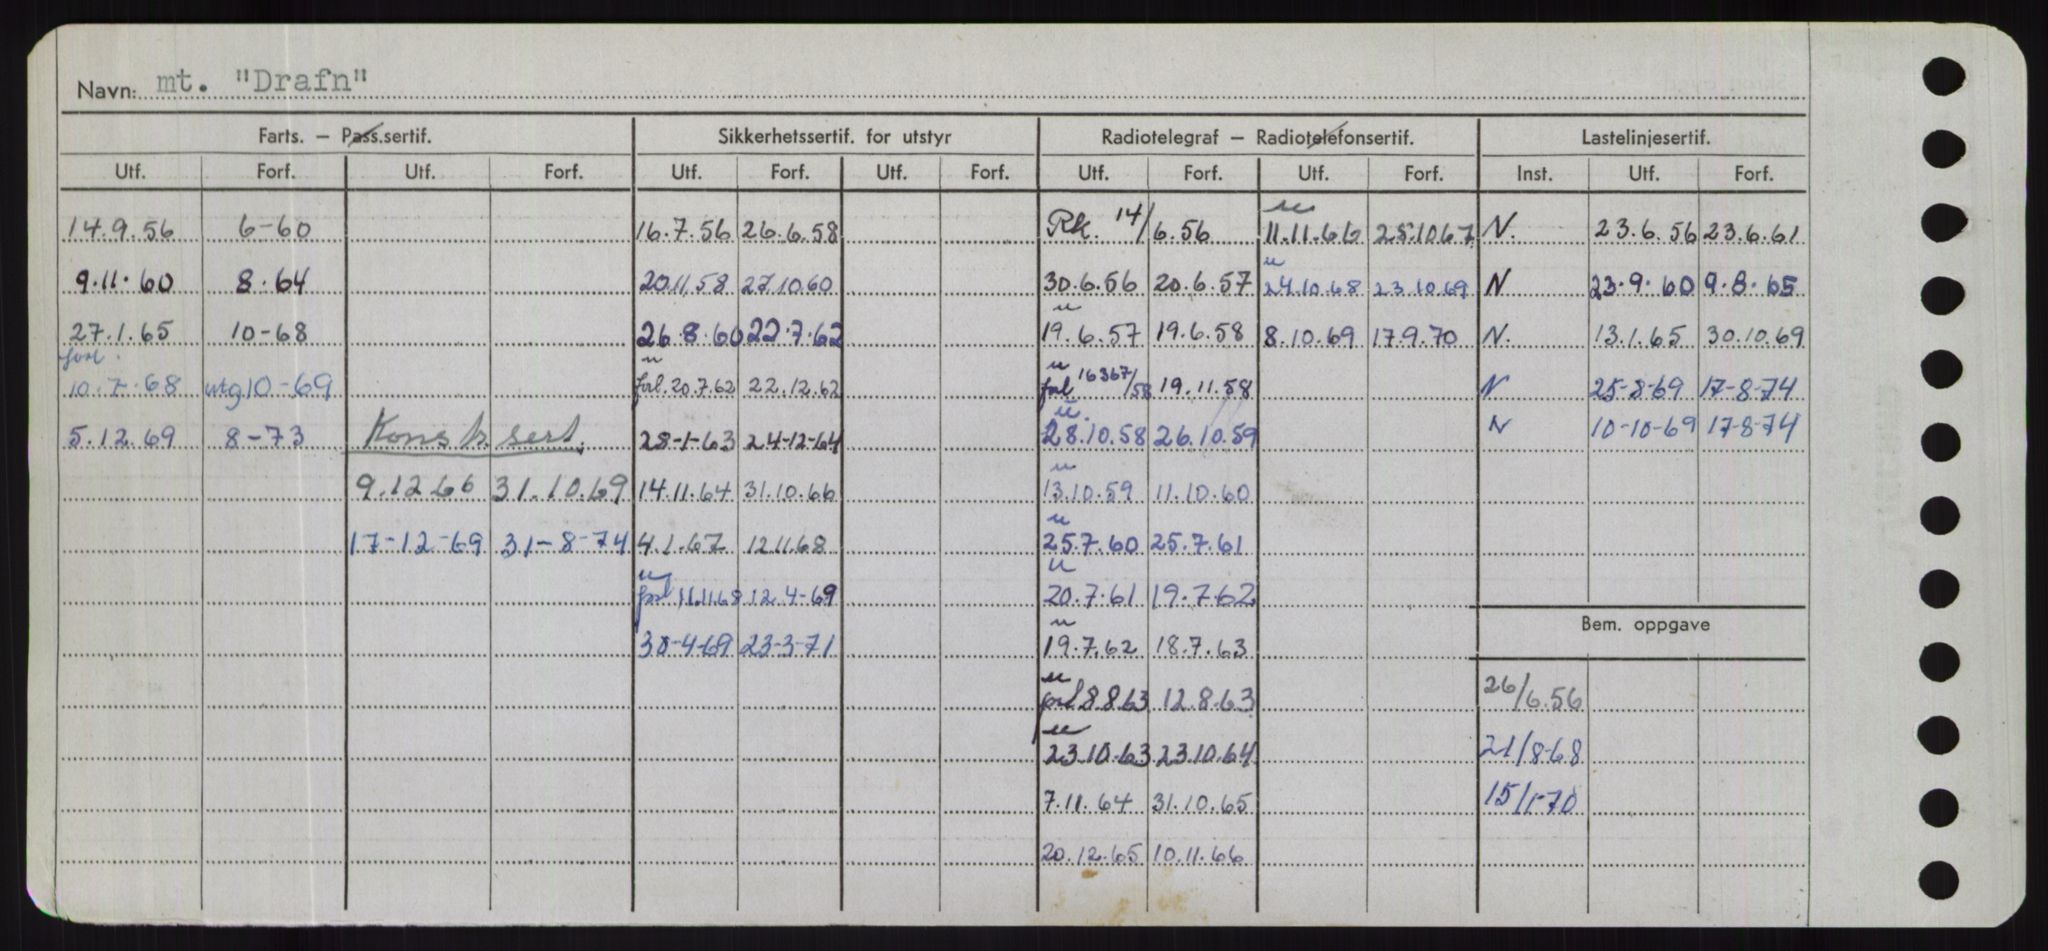 Navn: mt. "Drafn"
Farts. — Pass.sertif. Sikkerhetssertif. for utstyr Radiotelegraf — Radiotelefonsertif. Lastelinjesertif.
Utf. Forf. Utf. Forf. Utf. Forf. Utf. Forf. Utf. Forf. Utf. Forf. Inst. Utf. Forf.
14.9.56 6-60 16.7.56 26.6.58 Rk. 14/6.56 u 11.11.66 25.10.67 N. 23.6.56 23.6.61
9.11.60 8.64 20.11.58 27.10.60 30.6.56 20.6.57 u 24.10.68 23.10.69 N 23.9.60 9.8.65
27.1.65 10-68 26.8.60 22.7.62 u 19.6.57 19.6.58 8.10.69 17.9.70 N. 13.1.65 30.10.69
forl. 10.7.68 utg 10-69 u forl. 20.7.62 22.12.62 u forl 16367/58 19.11.58 N 25-8-69 17-8-74
5.12.69 8-73 Konstr. sert. 28-1-63 24-12-64 u. 28.10.58 26.10.59 N 10-10-69 17-8-74
9.12.66 31.10.69 14.11.64 31.10.66 u 13.10.59 11.10.60
17-12-69 31-8-74 4.1.67 12.11.68 u 25.7.60 25.7.61
u forl 11.11.68 12.4-69 u 20.7.61 19.7.62
30-4-69 23-3-71 u 19.7.62 18.7.63
Bem. oppgave
u forl 8.8.63 12.8.63 26/6.56
u 23.10.63 23.10.64 21/8-68
7.11.64 31.10.65 15/1-70
20.12.65 10.11.66